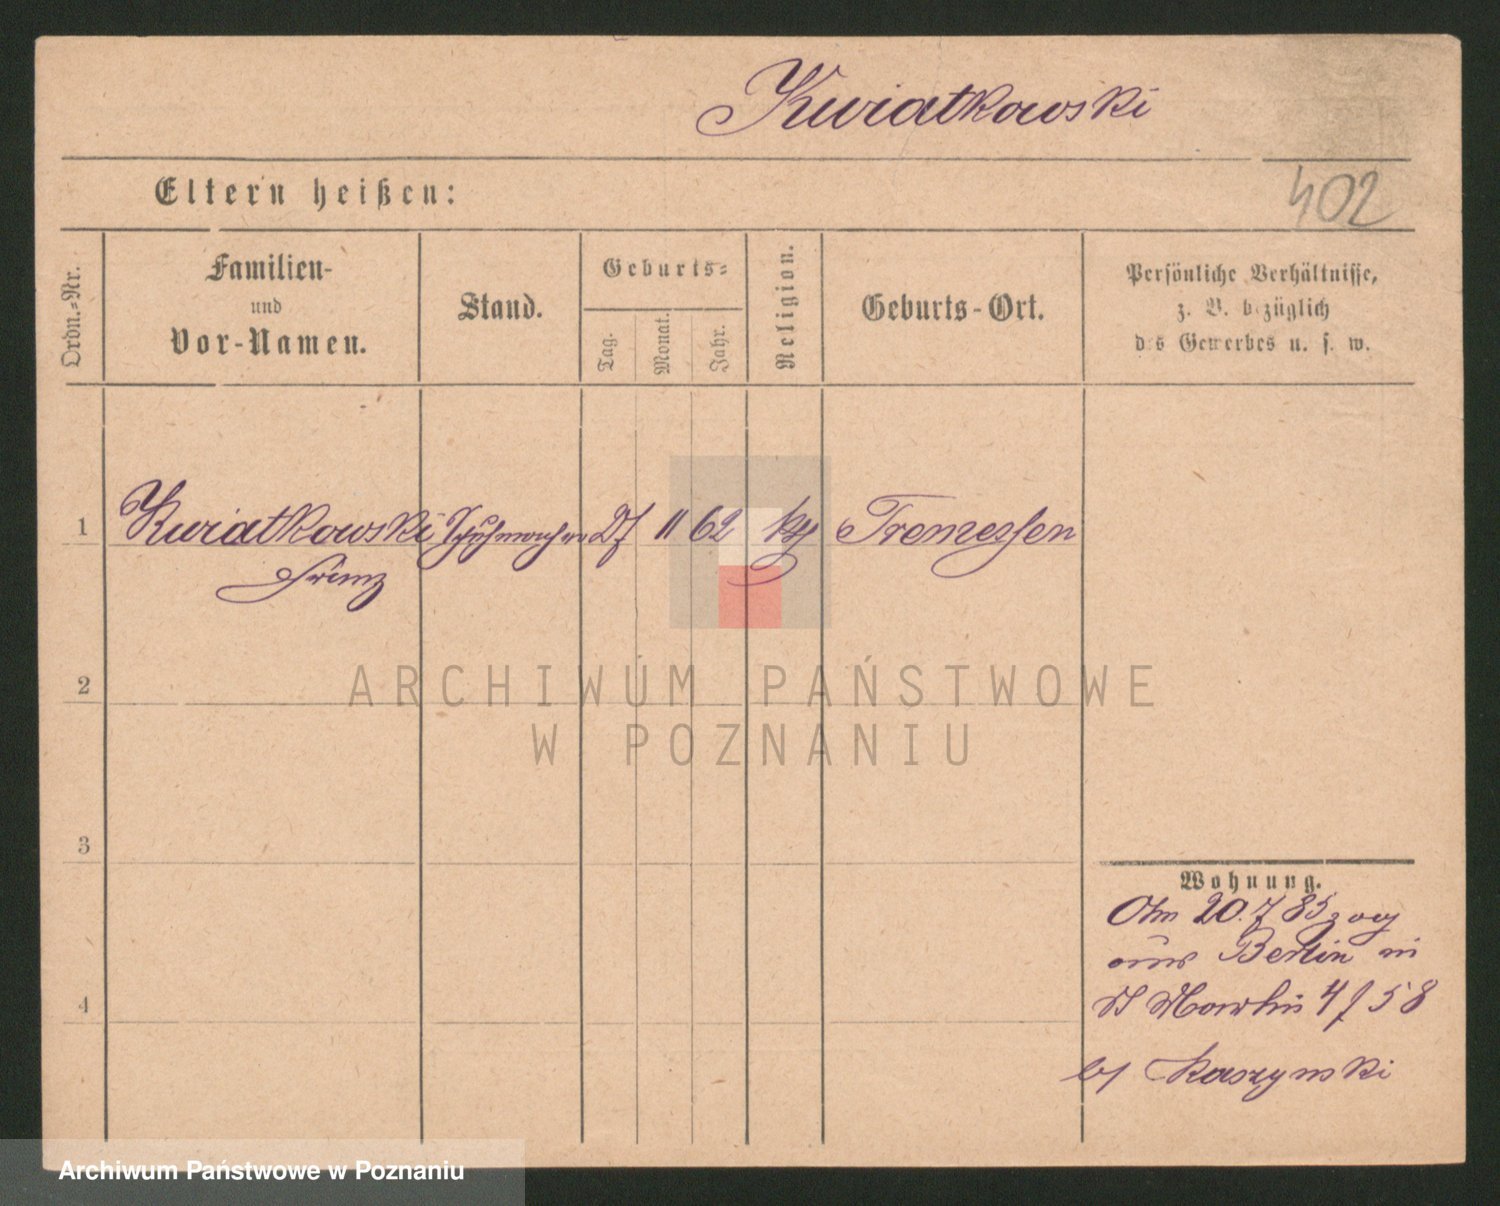 Kwiatkowski
Eltern heißen:
402
Ordn.-Nr.
Familien-
und
Vor-Namen.
Stand.
Geburts-
Tag.
Monat.
Jahr.
Religion.
Geburts-Ort.
Persönliche Verhältnisse,
z. B. bezüglich
des Gewerbes u. s. w.
1 Kwiatkowski Schuhmacher 11 62 kth Tremessen
Franz
2
ARCHIWUM PAŃSTWOWE
W POZNANIU
3
Wohnung.
Am 20.7 85 zog
aus Berlin in
St Martin 4 / 58
b/ Kaszynski
4
Archiwum Państwowe w Poznaniu